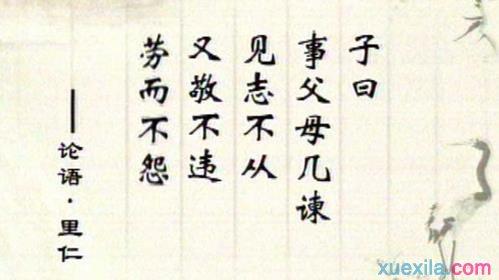 子曰
事父母几谏
见志不从
又敬不违
劳而不怨
——论语·里仁
xuexila.com